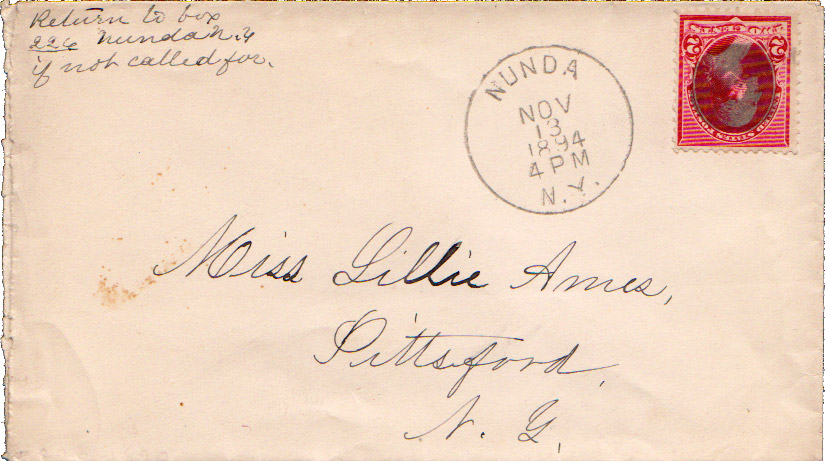 Return to box
226 Nunda N.Y
if not called for.
NUNDA
NOV
13
1894
4 PM
N.Y.
2 2
Miss Lillie Ames,
Pittsford,
N. Y,